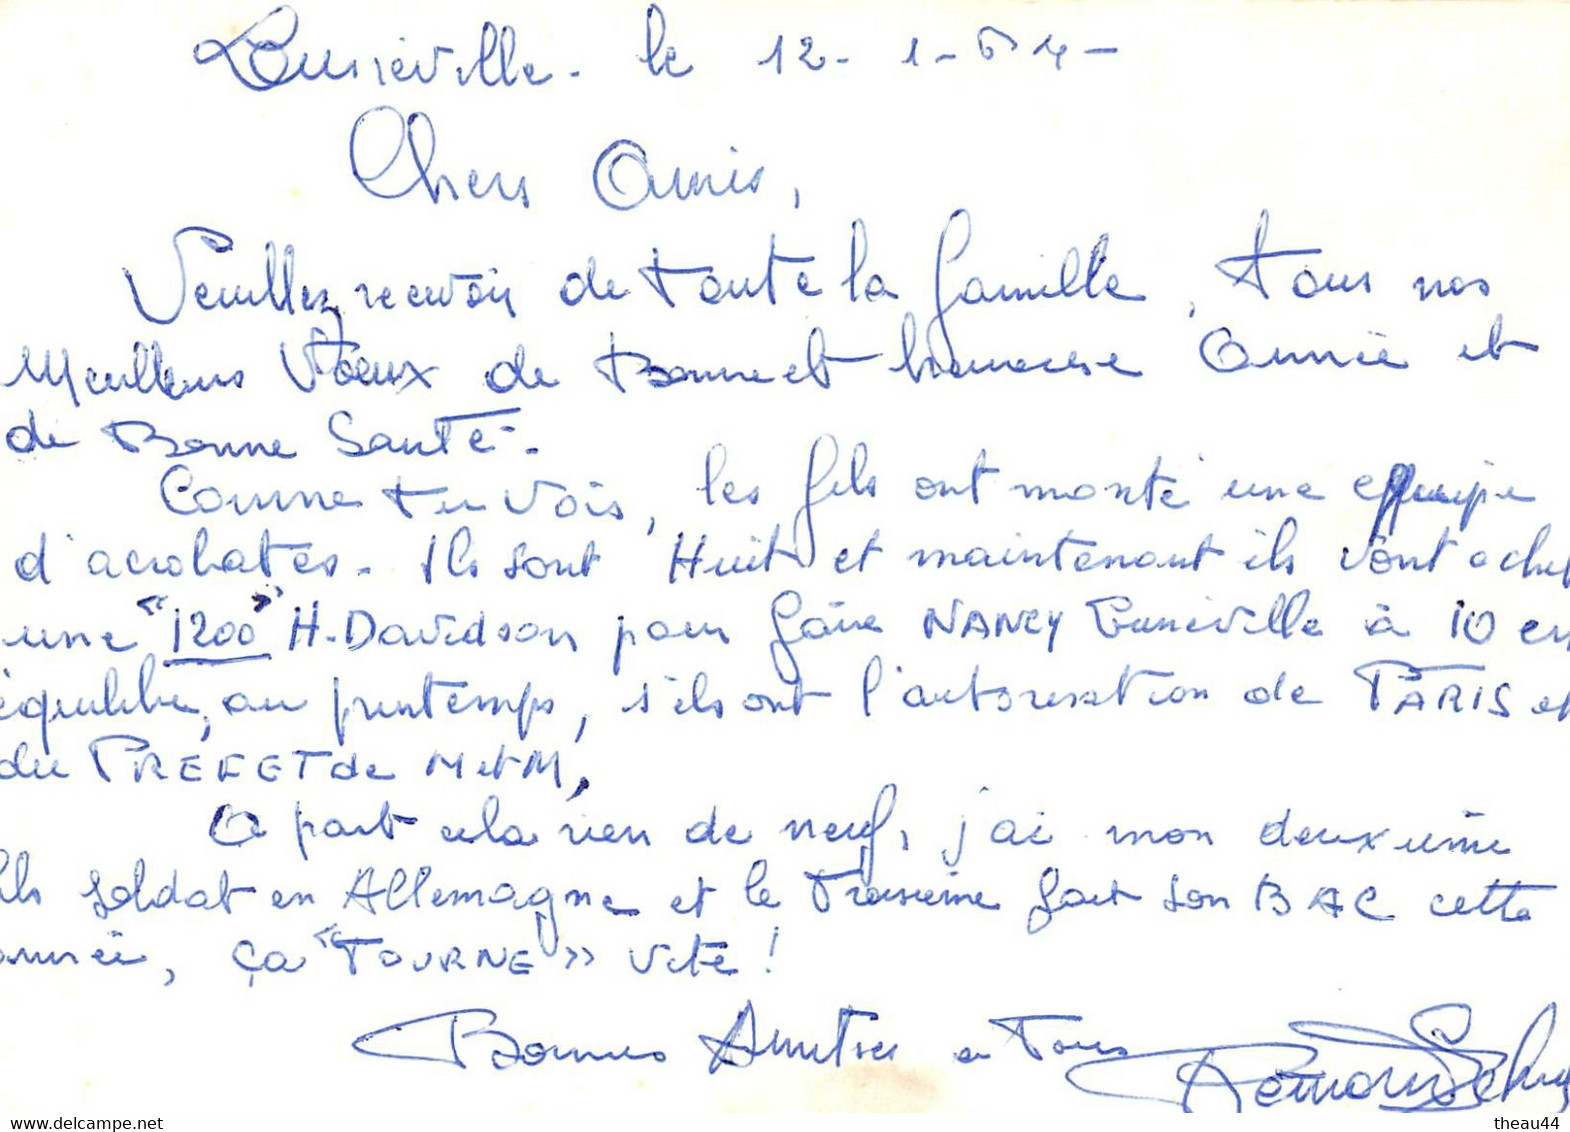 Lunéville - le 12-1-64-
Chers Amis,
Veuillez recevoir de toute la famille, tous nos
Meilleurs Voeux de Bonne et heureuse Année et
de Bonne Santé -
Comme tu vois, les fils ont monté une équipe
d'acrobates - Ils sont Huit et maintenant ils vont achet
une "1200" H-Davidson pour faire NANCY Lunéville à 10 en
équilibre, au printemps, s'ils ont l'autorisation de PARIS et
du PREFET de M et M,
A part cela rien de neuf, j'ai mon deuxième
fils soldat en Allemagne et le Troisième fait son BAC cette
année, ça "TOURNE" vite !
Bonnes Amitiés a Tous
delcampe.net
theau44